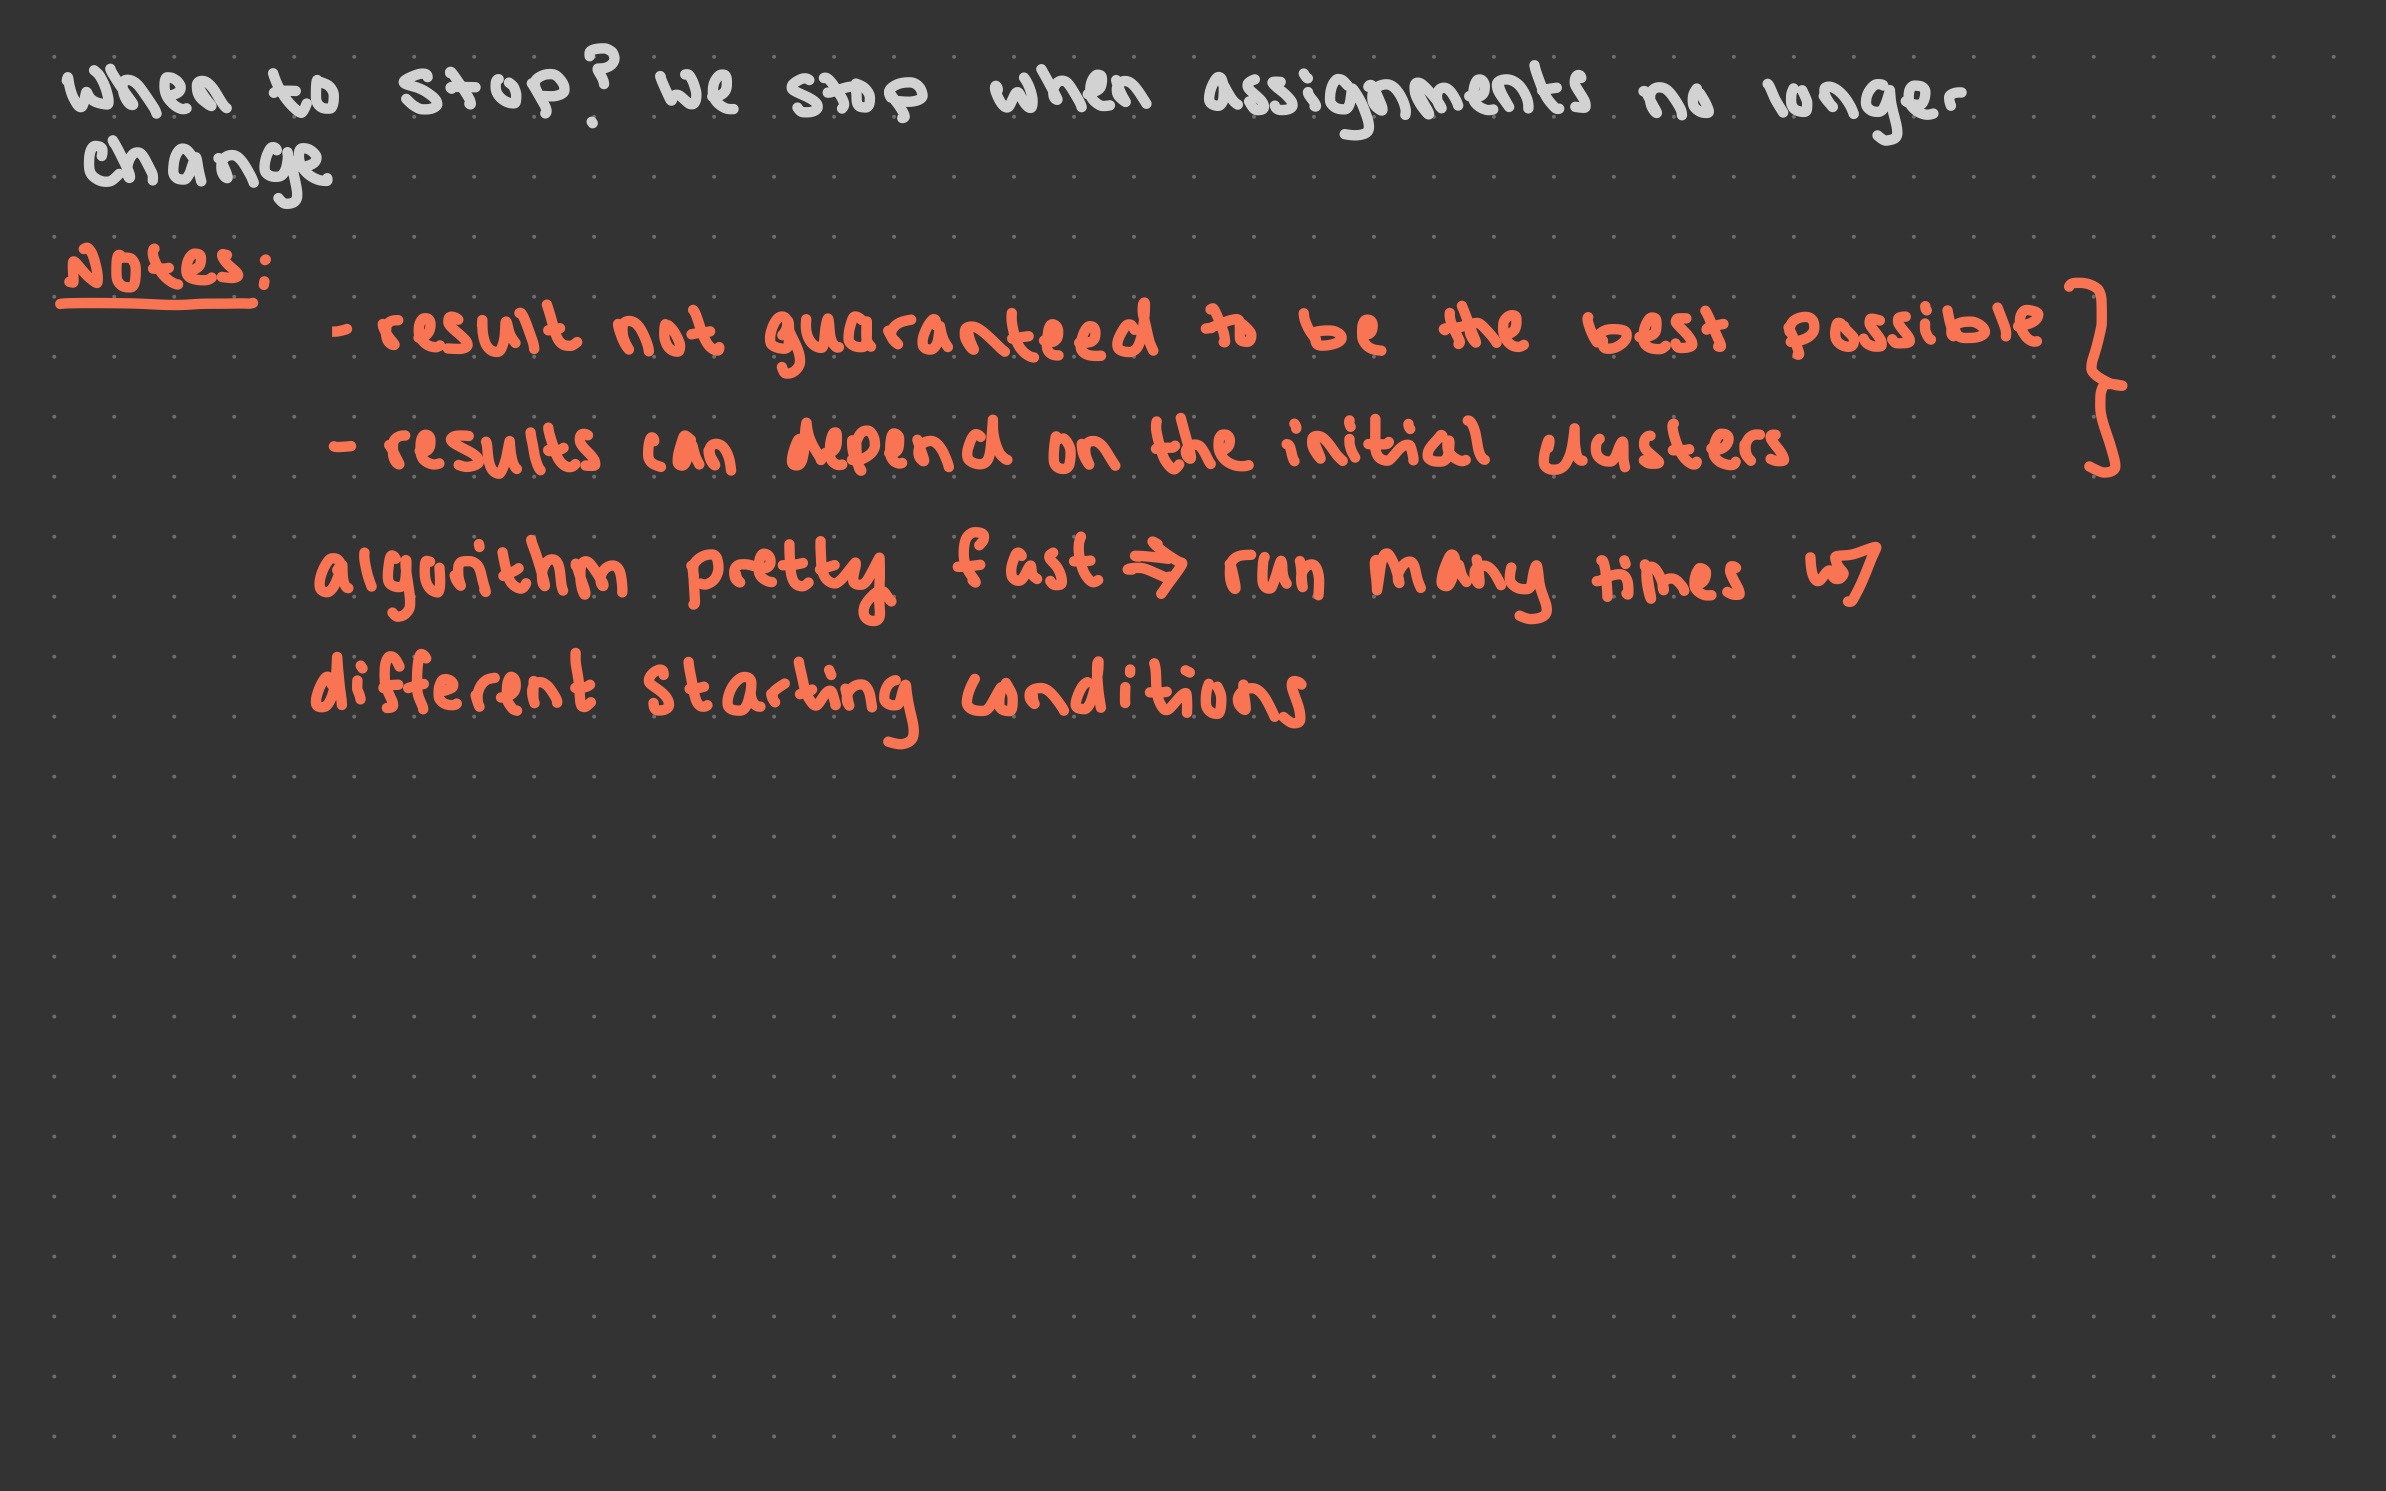 When to stop? We stop when assignments no longer
change
Notes:
- result not guaranteed to be the best possible
- results can depend on the initial clusters
algorithm pretty fast → run many times w/
different starting conditions